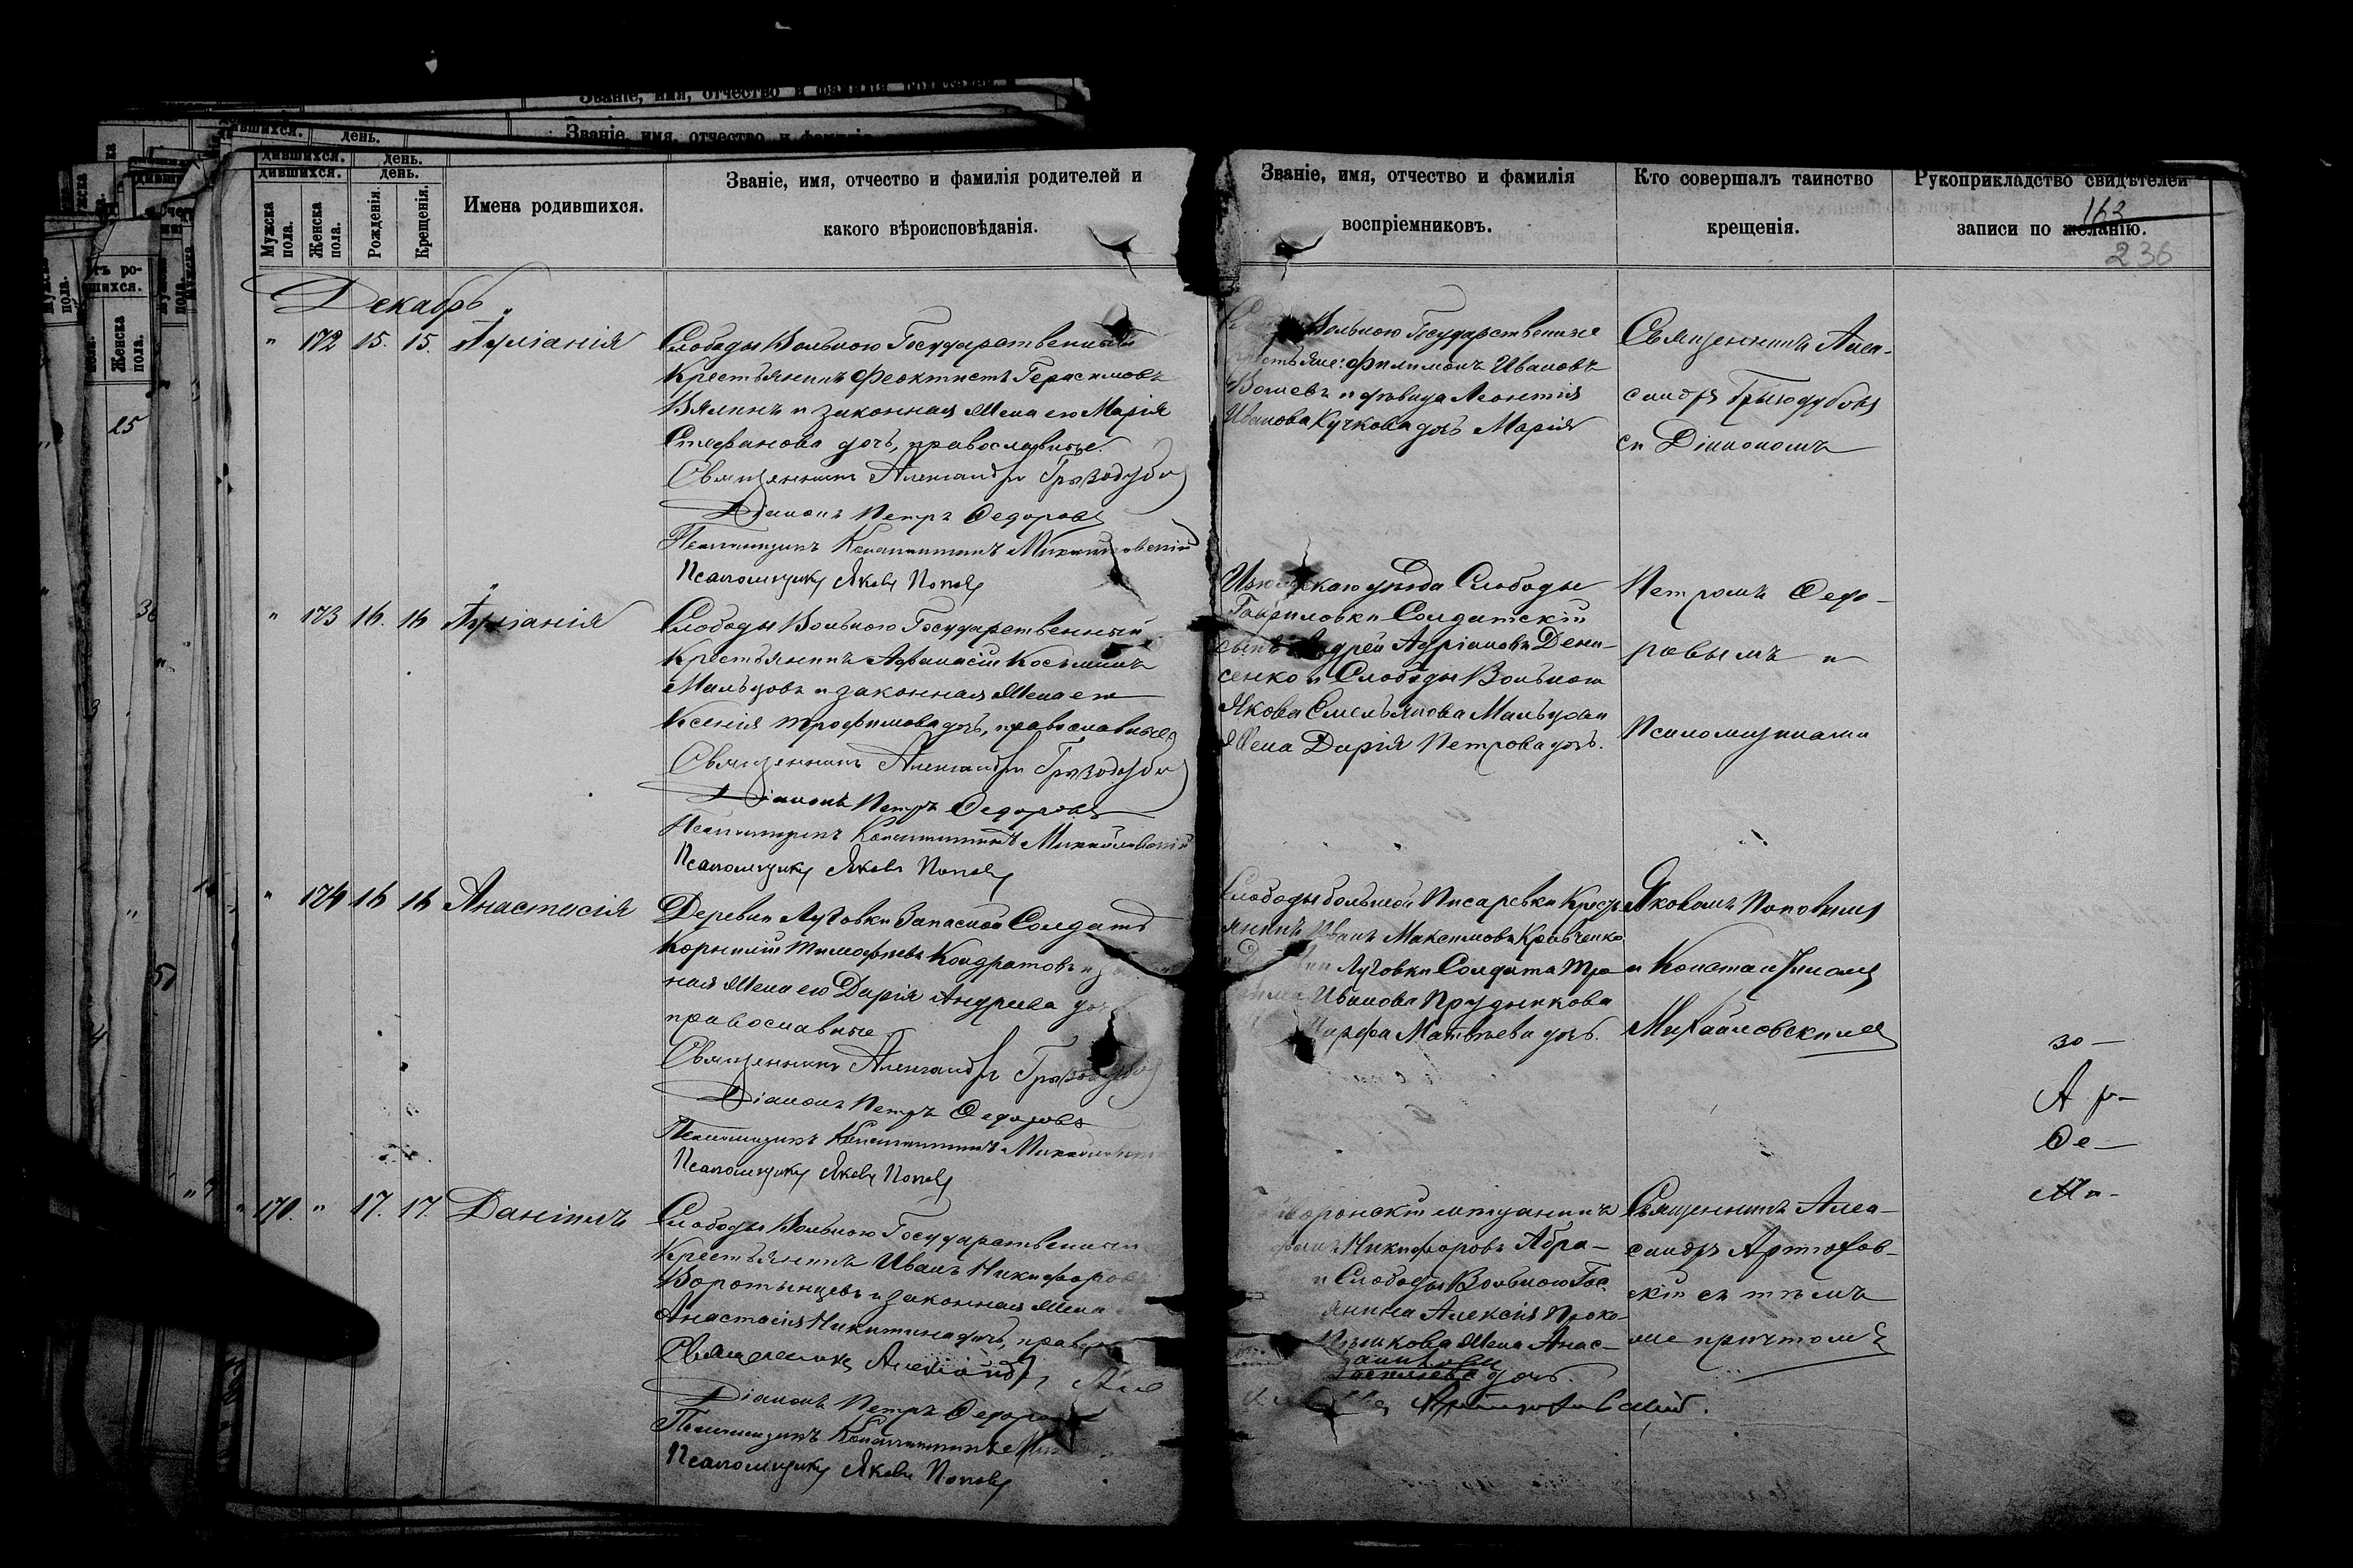 Званіе, имя, отчество и фамилія родителей и
Званіе, имя, отчество и фамилія
дившихся. день.
дившихся. день.
Мужска пола.
Женска пола.
Рожденія.
Крещенія.
Имена родившихся.
Званіе, имя, отчество и фамилія родителей и
какого вѣроисповѣданія.
Званіе, имя, отчество и фамилія
воспріемниковъ.
Кто совершалъ таинство
крещенія.
Рукоприкладство свидѣтелей
записи по желанію.
163
236
Декабрь
" 172 15. 15. Іуліанія
Слободы Вольного Государственный
Крестьянинъ Феоктистъ Герасимовъ
Вялинъ и законная Жена его Марія
Стефанова дочь, православные.
Священникъ Александръ Грызодубъ
Діаконъ Петръ Федоровъ
Псаломщикъ Константинъ Михайловскій
Псаломщикъ Яковъ Поповъ
Вольного Государственные
Филимонъ Ивановъ
и дѣвица Леонтія
Иванова Кучкова дочь Марія
Священникъ Алек-
сандръ Грызодубъ
съ Діакономъ
" 173 16. 16 Іуліанія
Слободы Вольного Государственный
Крестьянинъ Афанасій Косьминъ
Мальцовъ и законная Жена его
Ксенія Трофимова дочь, православные
Священникъ Александръ Грызодубъ
Діаконъ Петръ Федоровъ
Псаломщикъ Константинъ Михайловскій
Псаломщикъ Яковъ Поповъ
уѣзда Слободы
Гавриловки Солдатскій
сынъ Андрей Адріановъ Дени-
сенко и Слободы Вольного
Якова Емельянова Мальцова
Жена Дарія Петрова дочь.
Петромъ Федо-
ровымъ и
Псаломщиками
" 174 16 16 Анастасія
Деревни Луговки Запасной Солдатъ
Корнилій Тимофѣевъ Кондратовъ и
ная Жена его Дарія Андреева
православные
Священникъ Александръ Грызодубъ
Діаконъ Петръ Федоровъ
Псаломщикъ Константинъ
Псаломщикъ Яковъ Поповъ
Слободы большой Писаревки Кресть-
янинъ Иванъ Максимовъ Кравченко
Луговки Солдата Тро-
Иванова Прудникова
Марфа Матвѣева дочь.
Яковомъ Поповымъ
и Константиномъ
Михайловскимъ
зо-
А р-
Фе-
Ми-
" 170. " 17. 17. Даніилъ
Слободы Вольного Государственный
Крестьянинъ Иванъ Никифоровъ
Воротынцевъ и законная Жена
Анастасія Никитина дочь,
Священникъ Александръ
Діаконъ Петръ
Псаломщикъ Константинъ
Псаломщикъ Яковъ Поповъ
мѣщанинъ
Никифоровъ Абра-
и Слободы Вольного Гос
янина Алексія Проко-
Жена Анас-
дочь.
Священникъ Алек-
сандръ Артюхов-
скій съ тѣмъ
же причтомъ